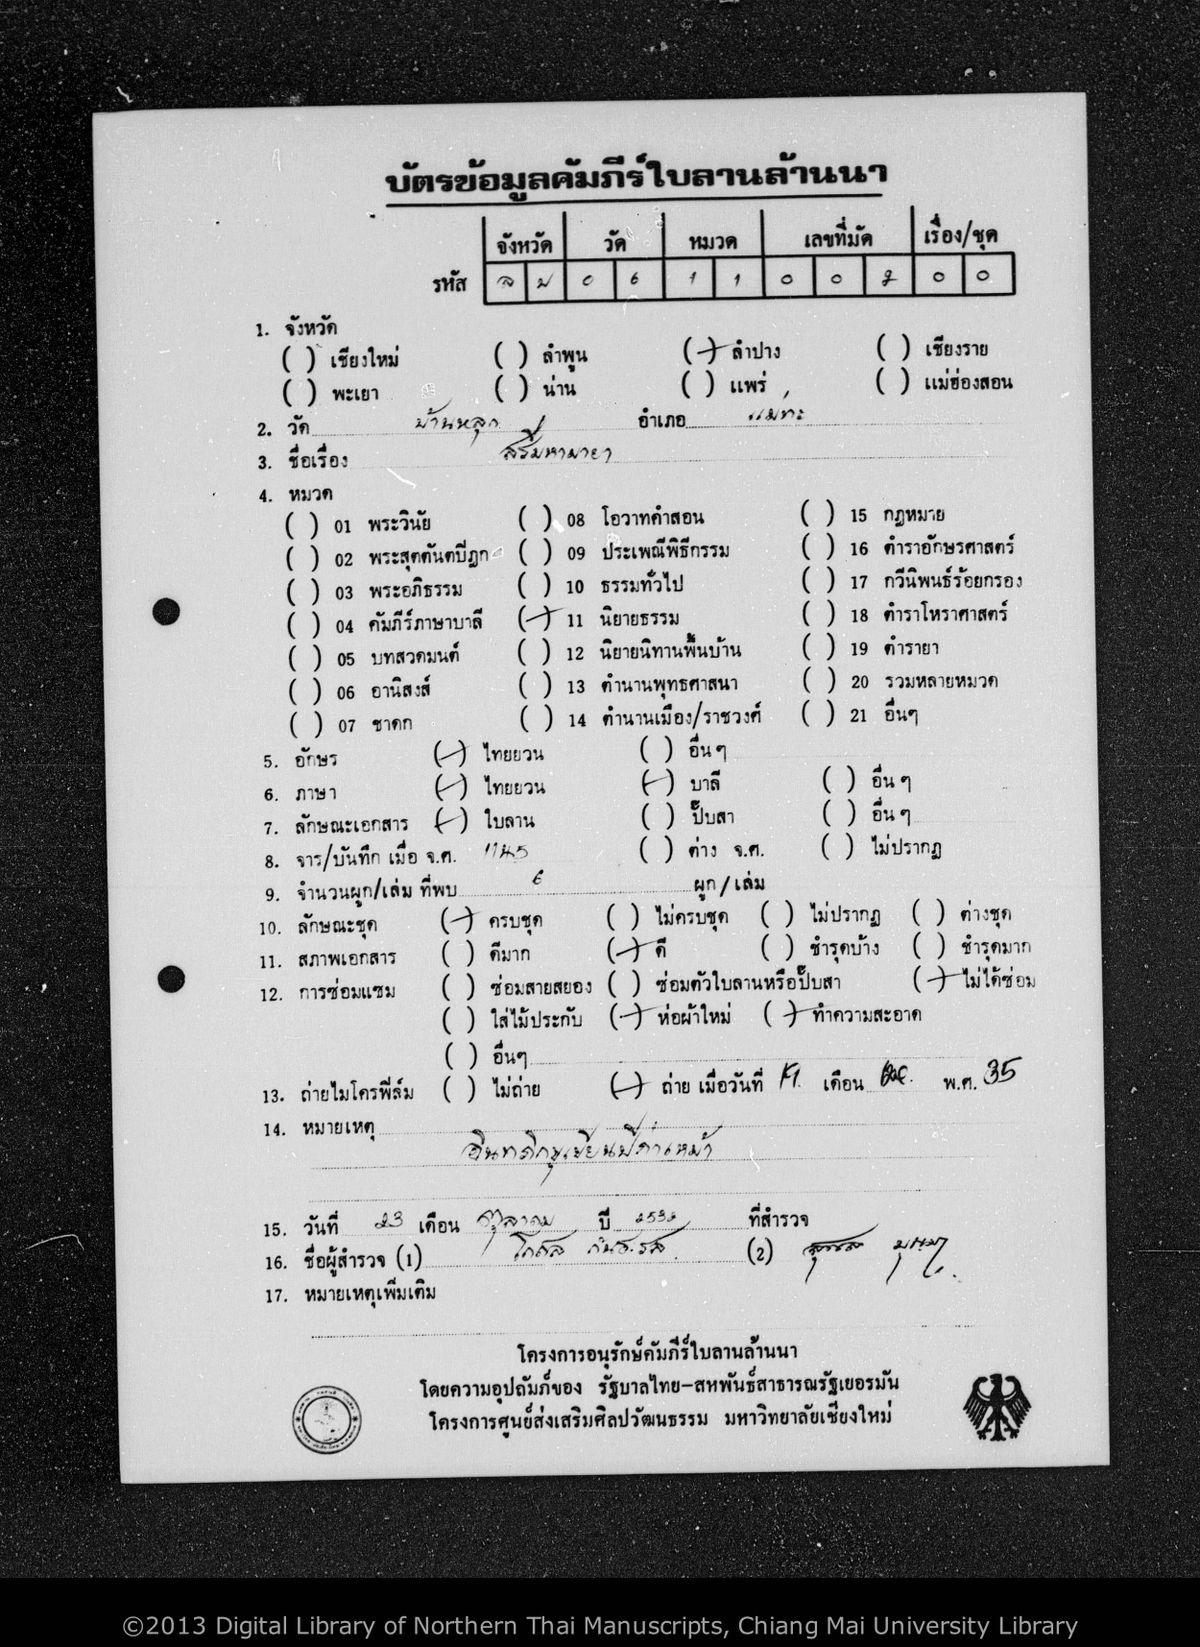 บัตรข้อมูลคัมภีร์ใบลานล้านนา
จังหวัด วัด หมวด เลขที่มัด เรื่อง/ชุด
รหัส ล ป 0 6 1 1 0 0 2 0 0
1. จังหวัด
( ) เชียงใหม่ ( ) ลำพูน (/) ลำปาง ( ) เชียงราย
( ) พะเยา ( ) น่าน ( ) แพร่ ( ) แม่ฮ่องสอน
2. วัด บ้านหลุก อำเภอ แม่ทะ
3. ชื่อเรื่อง สิริมหามายา
4. หมวด
( ) 01 พระวินัย ( ) 08 โอวาทคำสอน ( ) 15 กฎหมาย
( ) 02 พระสุตตันตปิฎก ( ) 09 ประเพณีพิธีกรรม ( ) 16 ตำราอักษรศาสตร์
( ) 03 พระอภิธรรม ( ) 10 ธรรมทั่วไป ( ) 17 กวีนิพนธ์ร้อยกรอง
( ) 04 คัมภีร์ภาษาบาลี (/) 11 นิยายธรรม ( ) 18 ตำราโหราศาสตร์
( ) 05 บทสวดมนต์ ( ) 12 นิยายนิทานพื้นบ้าน ( ) 19 ตำรายา
( ) 06 อานิสงส์ ( ) 13 ตำนานพุทธศาสนา ( ) 20 รวมหลายหมวด
( ) 07 ชาดก ( ) 14 ตำนานเมือง/ราชวงศ์ ( ) 21 อื่นๆ
5. อักษร (/) ไทยยวน ( ) อื่นๆ
6. ภาษา (/) ไทยยวน (/) บาลี ( ) อื่นๆ
7. ลักษณะเอกสาร (/) ใบลาน ( ) ปั๊บสา ( ) อื่นๆ
8. จาร/บันทึก เมื่อ จ.ศ. ( ) ต่าง จ.ศ. ( ) ไม่ปรากฏ
9. จำนวนผูก/เล่ม ที่พบ 6 ผูก/เล่ม
10. ลักษณะชุด (/) ครบชุด ( ) ไม่ครบชุด ( ) ไม่ปรากฏ ( ) ต่างชุด
11. สภาพเอกสาร ( ) ดีมาก (/) ดี ( ) ชำรุดบ้าง ( ) ชำรุดมาก
12. การซ่อมแซม ( ) ซ่อมสายสยอง ( ) ซ่อมตัวใบลานหรือปั๊บสา (/) ไม่ได้ซ่อม
( ) ใส่ไม้ประกับ (/) ห่อผ้าใหม่ (/) ทำความสะอาด
( ) อื่นๆ
13. ถ่ายไมโครฟิล์ม ( ) ไม่ถ่าย (/) ถ่าย เมื่อวันที่ เดือน พ.ศ. 35
14. หมายเหตุ
อินทภิกขุเขียนปีก่าเหม้า
15. วันที่ 23 เดือน ตุลาคม ปี 2532 ที่สำรวจ
16. ชื่อผู้สำรวจ (1) (2)
17. หมายเหตุเพิ่มเติม
โครงการอนุรักษ์คัมภีร์ใบลานล้านนา
โดยความอุปถัมภ์ของ รัฐบาลไทย-สหพันธ์สาธารณรัฐเยอรมัน
โครงการศูนย์ส่งเสริมศิลปวัฒนธรรม มหาวิทยาลัยเชียงใหม่
©2013 Digital Library of Northern Thai Manuscripts, Chiang Mai University Library